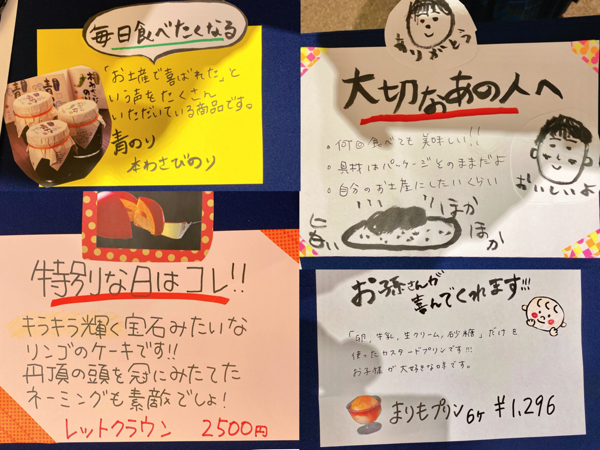 毎日食べたくなる
「お土産で喜ばれた」と
いう声をたくさん
いただいている商品です。
青のり
本わさびのり
ありがとう
大切なあの人へ
○何回食べても美味しい!!
○具材はパッケージそのままだよ
○自分のお土産にしたいくらい
おいしいよ
ほか
ほか
特別な日はコレ!!
キラキラ輝く宝石みたいな
リンゴのケーキです!!
丹頂の頭を冠にみたてた
ネーミングも素敵でしょ!
レットクラウン 2500円
お孫さんが
喜んでくれます!!!
「卵、牛乳、生クリーム、砂糖」だけを
使ったカスタードプリンです!!!
お子様が大好きな味です。
まりもプリン6ヶ ¥1,296